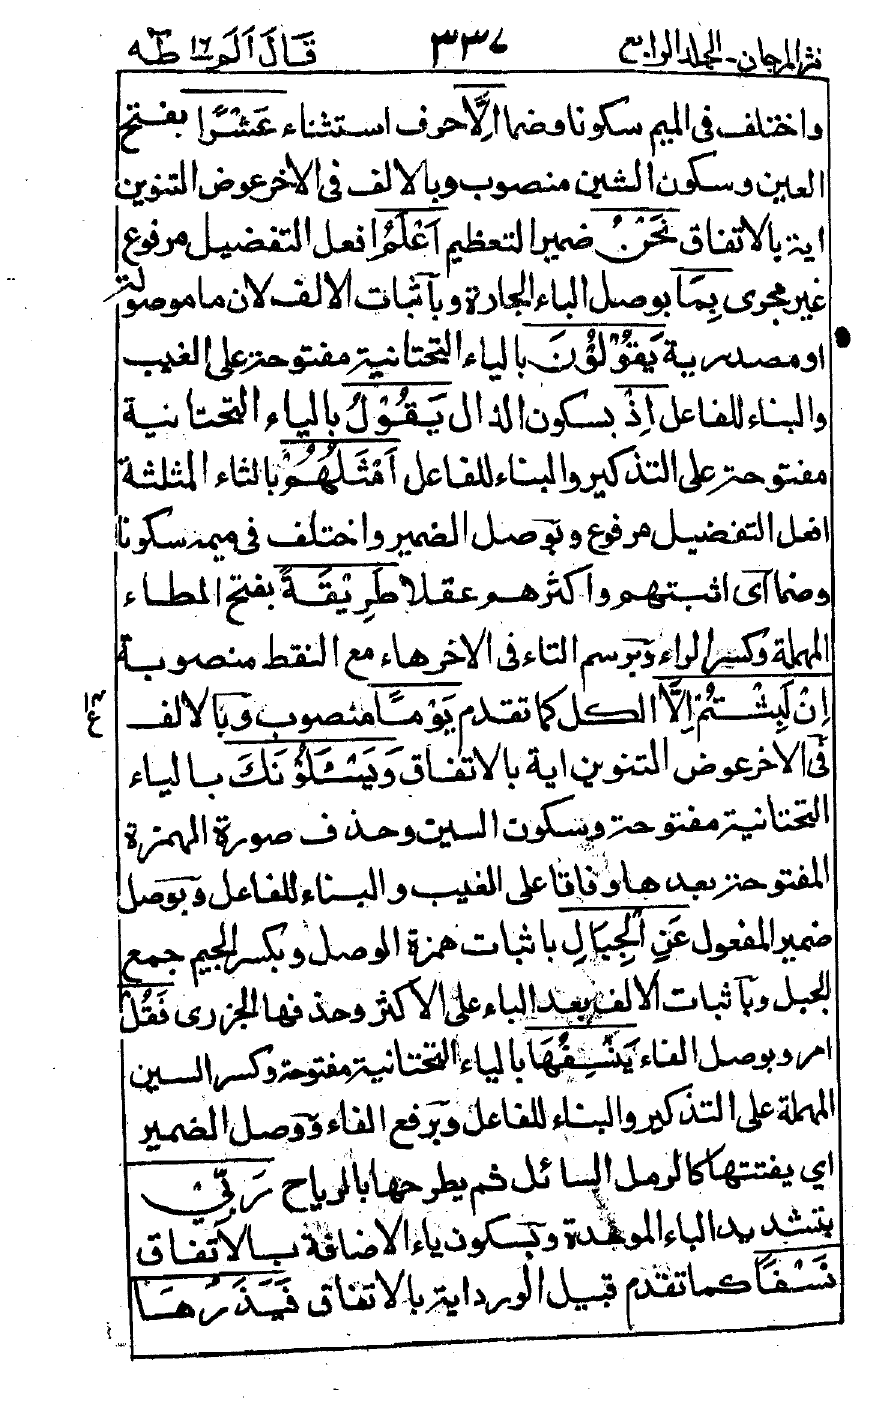 نثر المرجان - المجلد الرابع ٣٣٧ قال الم ١٦ طٰه
واختلف فى الميم سكونا وضما اِلَّا حرف استثناء عَشْرًا بفتح
العين وسكون الشين منصوب وبالالف فى الاخر عوض التنوين
اية بالاتفاق نَحْنُ ضمير التعظيم اَعْلَمُ افعل التفضيل مرفوع
غير مجرى بِمَا بوصل الباء الجارة وبآثبات الالف لان ما موصولة
او مصدرية يَقُوْلُوْنَ بالياء التحتانية مفتوحة على الغيب
والبناء للفاعل اِذْ بسكون الذال يَقُوْلُ بالياء التحتانية
مفتوحة على التذكير والبناء للفاعل اَمْثَلُهُمْ بالثاء المثلثة
افعل التفضيل مرفوع وبوصل الضمير واختلف فى ميمه سكونا
وضما اى اثبتهم واكثرهم عقلا طَرِيْقَةً بفتح الطاء
المهملة وكسر الراء وبرسم التاء فى الاخر هاء مع النقط منصوبة
اِنْ لَبِثْتُمْ اِلَّا الكل كما تقدم يَوْمًا منصوب وبالالف
فى الاخر عوض التنوين اية بالاتفاق وَيَسْئَلُوْنَكَ بالياء
التحتانية مفتوحة وسكون السين وحذف صورة الهمزة
المفتوحة بعدها وفاقا على الغيب والبناء للفاعل وبوصل
ضمير المفعول عَنِ الْجِبَالِ باثبات همزة الوصل وبكسر الجيم جمع
الجبل وبآثبات الالف بعد الباء على الاكثر وحذفها الجزرى فَقُلْ
امر وبوصل الفاء يَنْسِفُهَا بالياء التحتانية مفتوحة وكسر السين
المهملة على التذكير والبناء للفاعل وبرفع الفاء ووصل الضمير
اي يفتتها كالرمل السائل ثم يطرحها بالرياح رَبِّىْ
بتشديد الباء الموحدة وبسكون ياء الاضافة بالاتفاق
نَسْفًا كما تقدم قبيل الورد اية بالاتفاق فَيَذَرُهَا